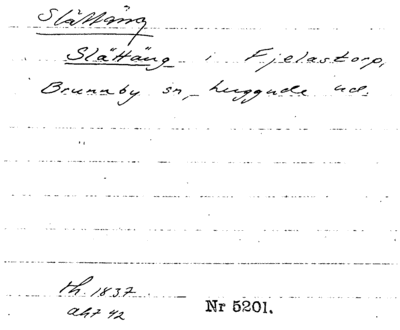 Slättäng
Slättäng i Fjelastorp,
Brunnby sn, Luggude hd.
th. 1837
akt 42 Nr 5201.